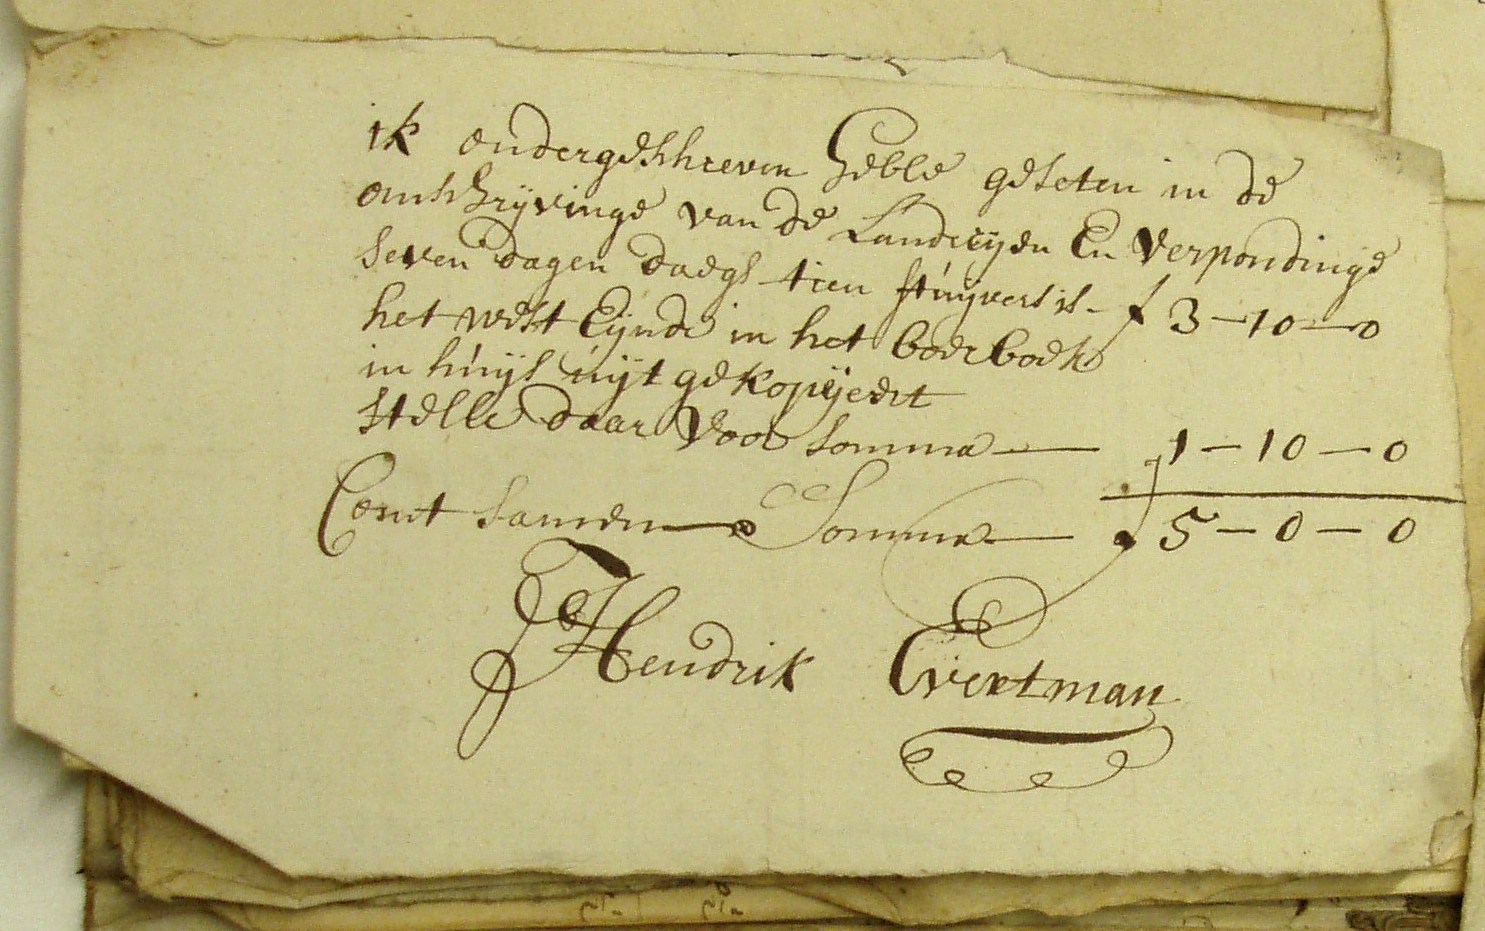 ik ondergeschreven heble geseten in de
omschrijvinge van de Landerijen En Verpondinge
seven dagen daegs tien stuijvers is - f 3-10-0
het west Eijnde in het boerboek
in huijs uijt gekopijeert
stelle daar voor somma — 1-10-0
Comt samen Somma — 5-0-0
Hendrik Evertman